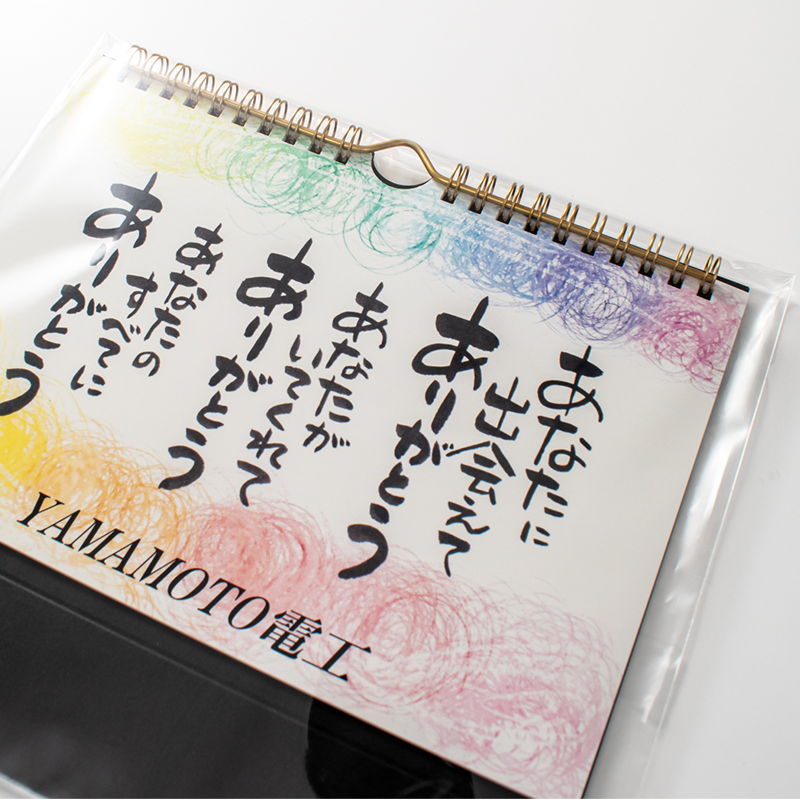 あなたに
出会えて
ありがとう
あなたが
いてくれて
ありがとう
あなたの
すべてに
ありがとう
YAMAMOTO電工